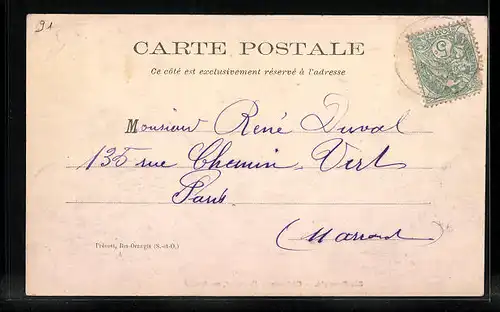 91
CARTE POSTALE
Ce côté est exclusivement réservé à l'adresse
Monsieur René Duval
135 rue Chemin Vert
Paris
Prévost, Ris-Orangis (S.-et-O.)